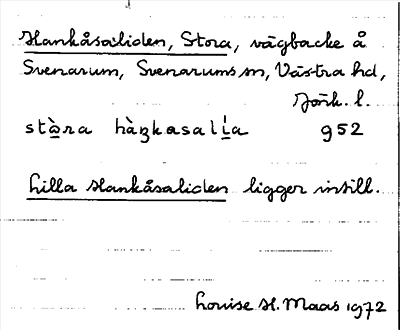 Hankåsaliden, Stora, vägbacke å
Svenarum, Svenarums sn, Västra hd,
Jönk. l.
stòra hàŋkasalı̀a 952
Lilla Hankåsaliden ligger intill.
Louise H. Maas 1972